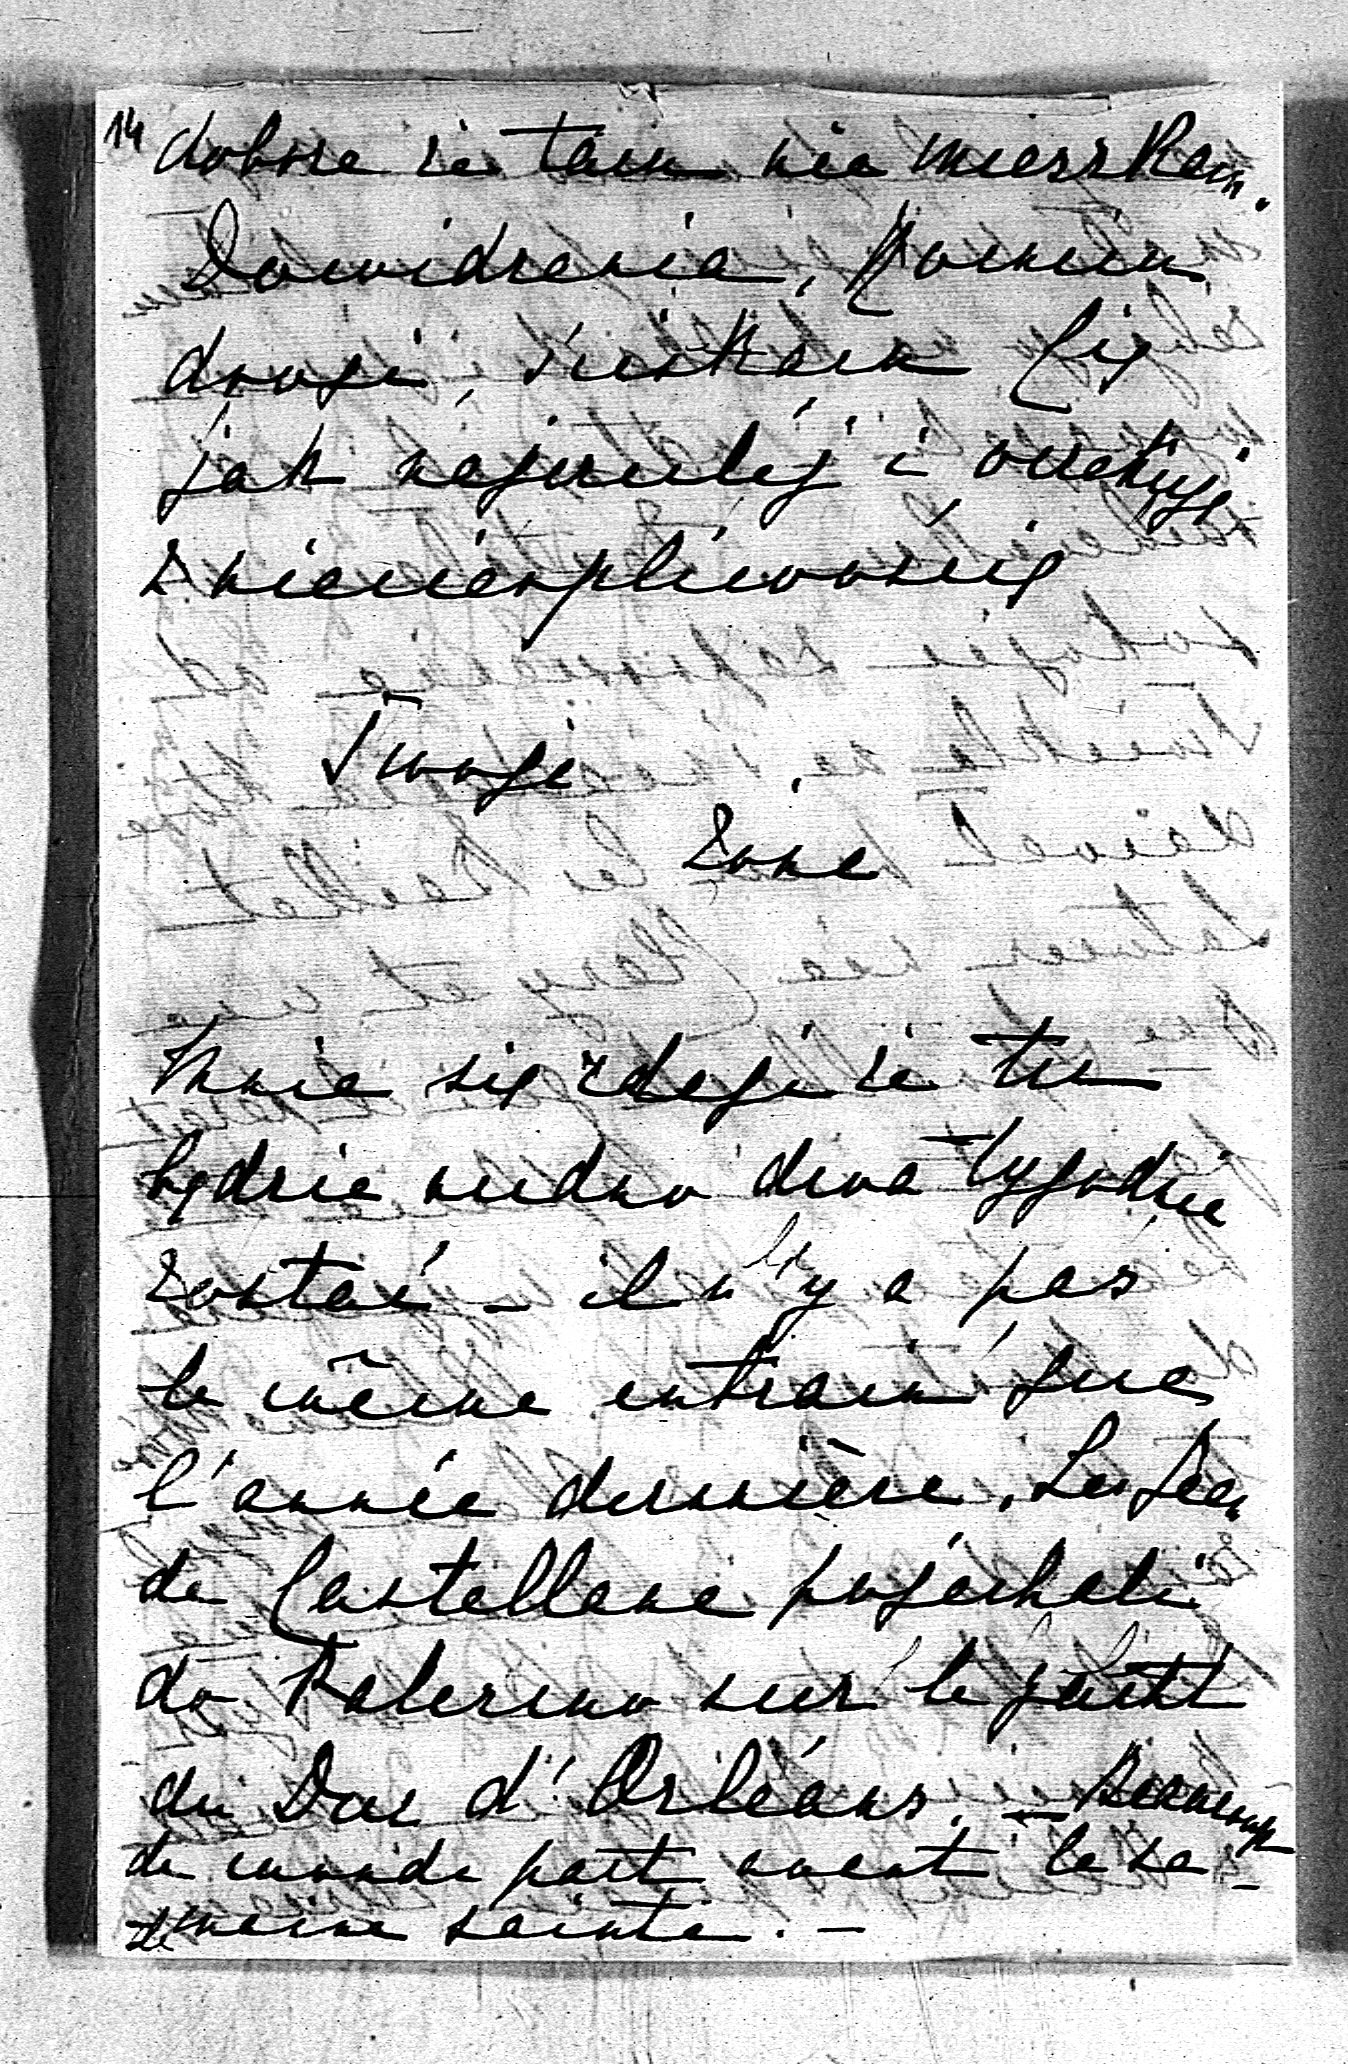 14
dobrze że tam nie mieszkam.
Dowidzenia, Kominiu
drogi, ściskam Cię
jak najmilej i oczekuję
z niecierpliwością
Twoja
Żona
Mnie się zdaje że tu
będzie nudno dwa tygodnie
zostać – il n'y a pas
le même entrain que
l'année dernière. Les Jean
de Castellane pojechali
do Palermo sur le yacht
du Duc d'Orléans. – Beaucoup
de monde part avant la se-
maine sainte. –